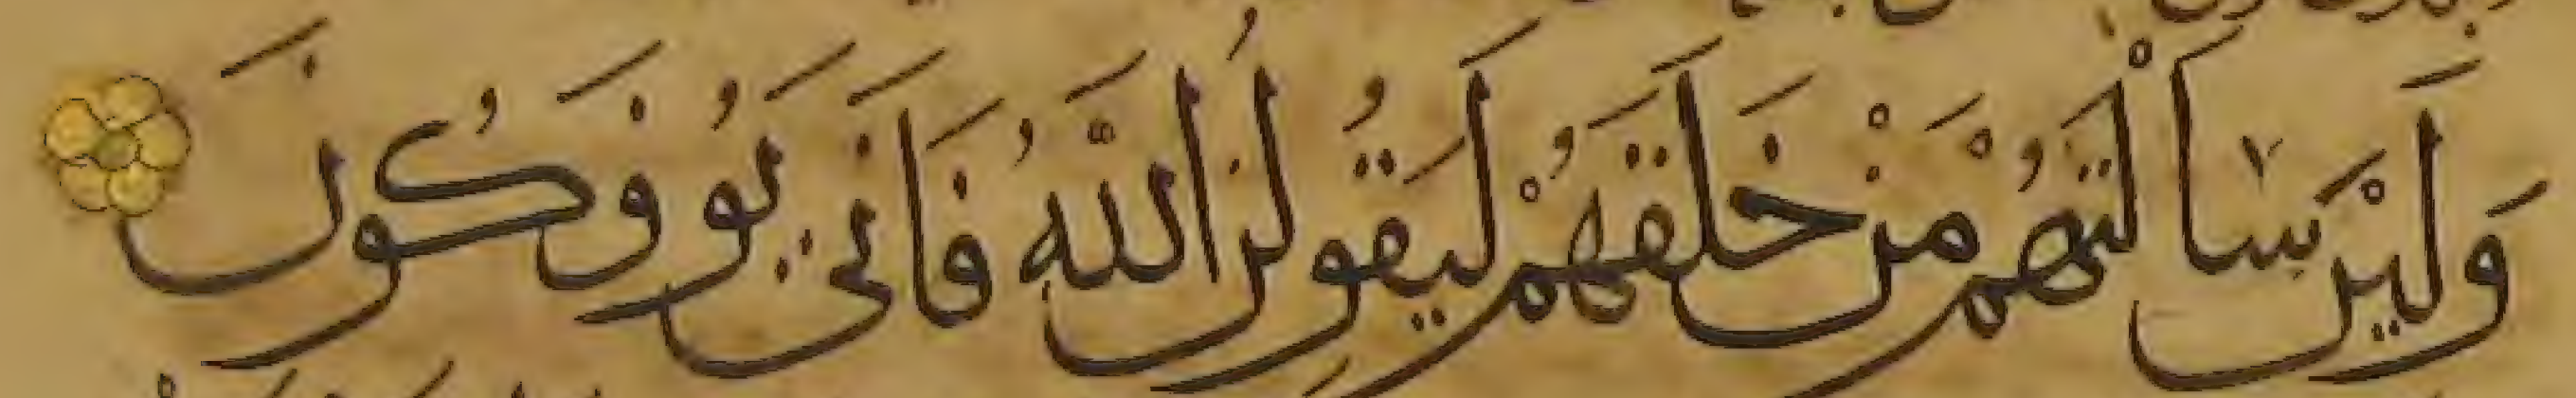 وَلَيِن سَأَلْتَهُمْ مَنْ خَلَقَهُمْ لَيَقُولُنَّ اللَّهُ فَاَنَّى يُوفَكُونَ